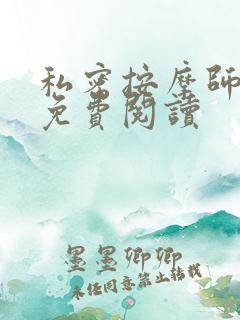 私密按摩師
免費閱讀
墨墨卿卿
未经同意禁止转载